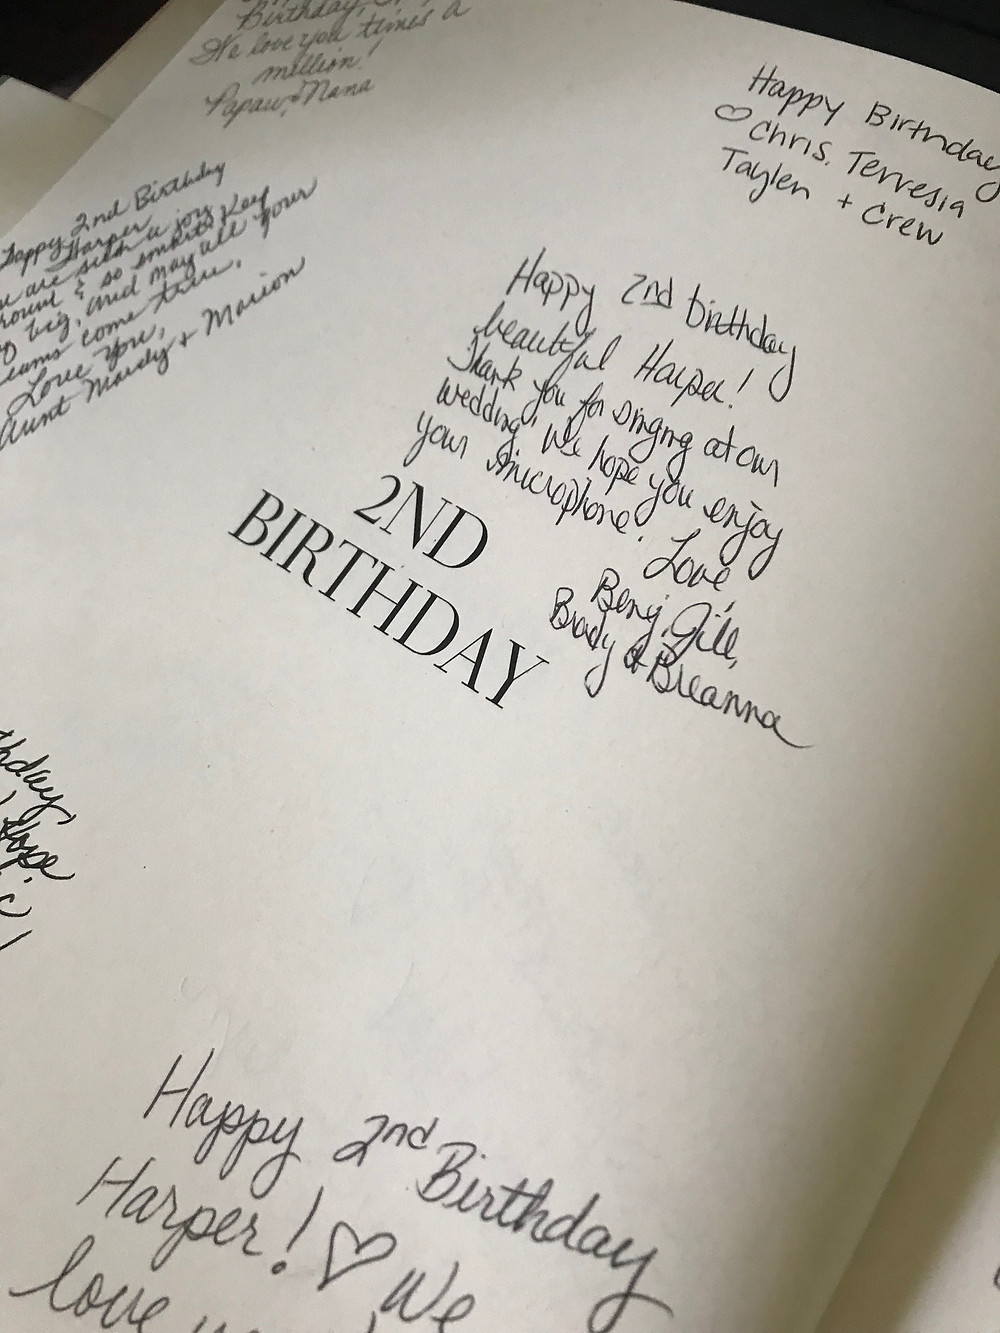 Birthday,
We love you times a
million!
Papaw & Nana
Happy Birthday
♡ Chris, Terresia
Taylen + Crew
Happy 2nd Birthday
Harper
are such a joy
& so smart! Keep
big, and may all your
come true.
Love You,
Aunt Mandy + Marion
Happy 2nd birthday
beautiful Harper!
Thank you for singing at our
wedding! We hope you enjoy
your microphone!
Love,
Benj, Jill,
Brody & Breanna
2ND
BIRTHDAY
Hope
Happy 2nd Birthday
Harper! ♡ We
love